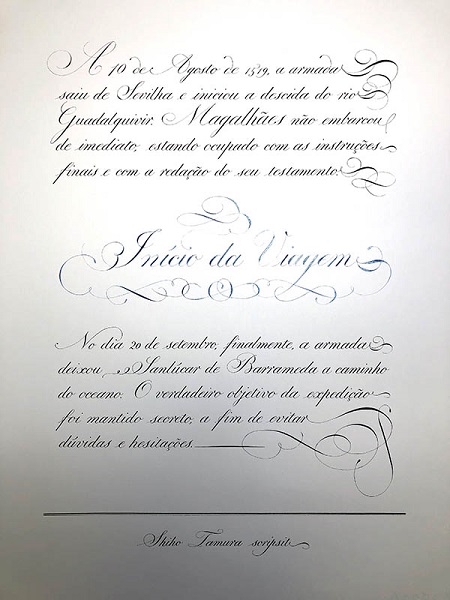 A 10 de Agosto de 1519, a armada
saiu de Sevilha e iniciou a descida do rio
Guadalquivir. Magalhães não embarcou
de imediato, estando ocupado com as instruções
finais e com a redação do seu testamento.
Início da Viagem
No dia 20 de setembro, finalmente, a armada
deixou Sanlúcar de Barrameda a caminho
do oceano. O verdadeiro objetivo da expedição
foi mantido secreto, a fim de evitar
dúvidas e hesitações.
Shiho Tamura scripsit